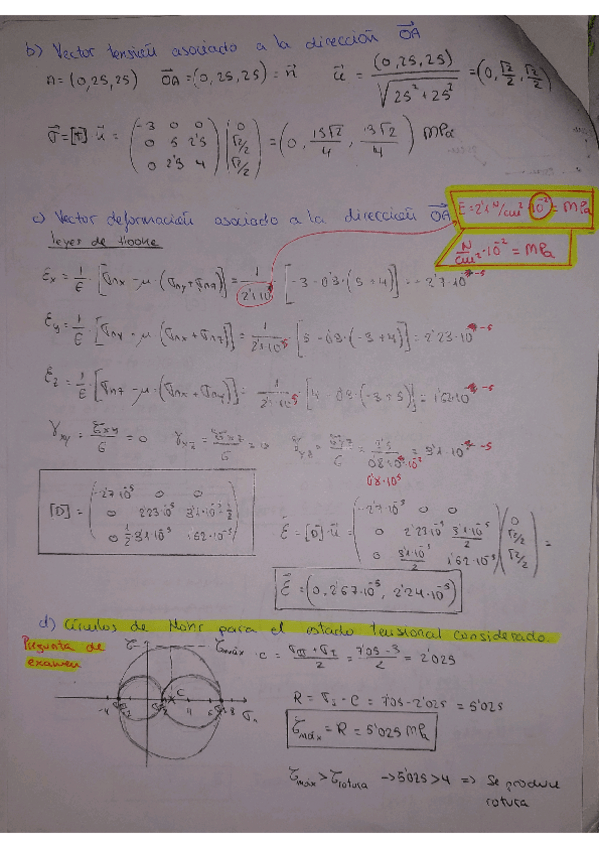 b) Vector tensión asociado a la dirección OA
n = (0,25,25) OA = (0,25,25) = n u = (0,25,25) / √25²+25² = (0, √2/2, √2/2)
σ = [T] u = (-3 0 0 / 0 5 2'5 / 0 2'5 4) (0 / √2/2 / √2/2) = (0, 15√2/4, 13√2/4) MPa
E = 2'1 N/cm² · 10⁻² = MPa
c) Vector deformación asociado a la dirección OA
N/cm² · 10⁻² = MPa
leyes de Hooke
εx = 1/E · [σnx - μ · (σny + σnz)] = 1/2'1·10⁵ [-3 - 0'3 · (5+4)] = -2'7·10⁻⁵
εy = 1/E · [σny - μ · (σnx + σnz)] = 1/2'1·10⁵ [5 - 0'3 · (-3+4)] = 2'23·10⁻⁵
εz = 1/E · [σnz - μ · (σnx + σny)] = 1/2'1·10⁵ · [4 - 0'3 · (-3+5)] = 1'62·10⁻⁵
γxy = τxy/G = 0 γxz = τxz/G = 0 γyz = τyz/G = 2'5 / = 3'1·10⁻⁵
0'8·10⁵
[D] = (-2'7·10⁻⁵ 0 0 / 0 2'23·10⁻⁵ 3'1·10⁻⁵·1/2 / 0 1/2·3'1·10⁻⁵ 1'62·10⁻⁵)
ε = [D] · u = (-2'7·10⁻⁵ 0 0 / 0 2'23·10⁻⁵ 3'1·10⁻⁵/2 / 0 3'1·10⁻⁵/2 1'62·10⁻⁵) (0 / √2/2 / √2/2) =
ε = (0, 2'67·10⁻⁵, 2'24·10⁻⁵)
d) Círculos de Mohr para el estado tensional considerado.
Pregunta de examen
τ τmáx · C = σIII + σI / 2 = 7'05 - 3 / 2 = 2'025
-4 C 4 6 8 σn
R = σI - C = 7'05 - 2'025 = 5'025
τmáx = R = 5'025 MPa
τmáx > τrotura → 5'025 > 4 => Se produce
rotura